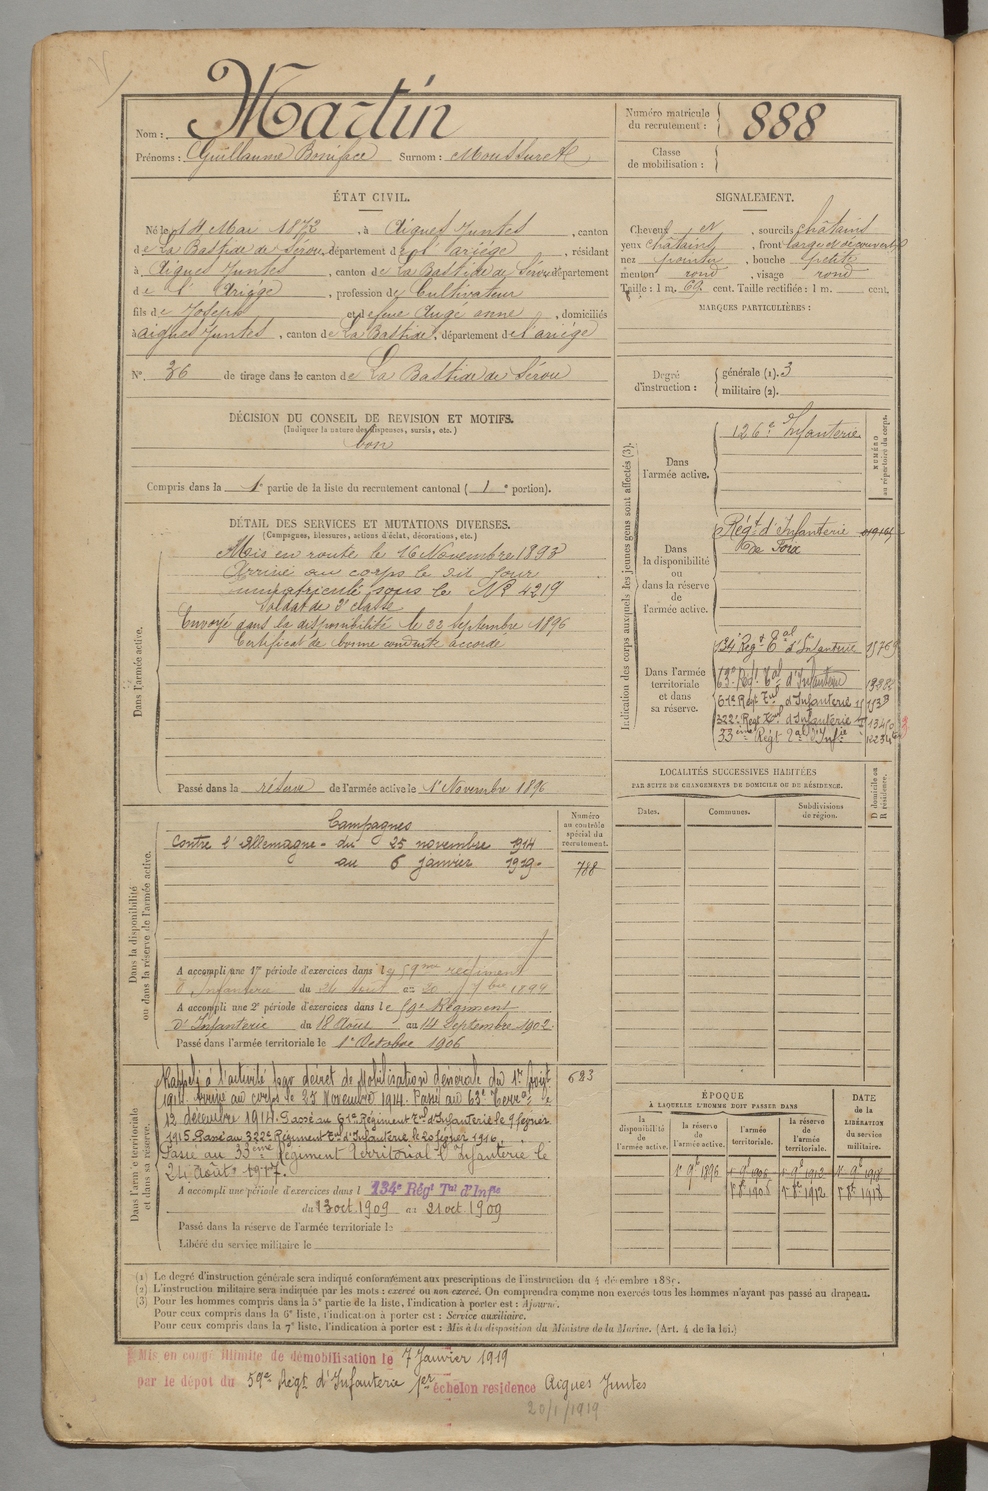 Martin
Nom :
Prénoms : Guillaume Boniface Surnom :
Numéro matricule
du recrutement : 888
Classe
de mobilisation :
ÉTAT CIVIL.
Né le 14 Mai 1872, à Aigues Juntes, canton
de La Bastide de Sérou, département de l'ariége, résidant
à Aigues Juntes, canton de La Bastide de Sérou département
de l'Ariége, profession de Cultivateur
fils de Joseph et de feue Augé anne, domiciliés
à aigues Juntes, canton de La Bastide, département de l'ariége
N°. 36 de tirage dans le canton de La Bastide de Sérou
SIGNALEMENT.
Cheveux et, sourcils châtains
yeux châtains, front large et découvert
nez pointu, bouche petite
menton rond, visage rond
Taille : 1 m. 62 cent. Taille rectifiée : 1 m. cent.
MARQUES PARTICULIÈRES :
Degré
d'instruction :
générale (1). 3
militaire (2).
DÉCISION DU CONSEIL DE REVISION ET MOTIFS.
(Indiquer la nature des dispenses, sursis, etc.)
bon
Compris dans la 1e partie de la liste du recrutement cantonal (1e portion).
DÉTAIL DES SERVICES ET MUTATIONS DIVERSES.
(Campagnes, blessures, actions d'éclat, décorations, etc.)
Dans l'armée active.
Mis en route le 16 Novembre 1893
Arrivé au corps le dit jour
immatriculé sous le N° 4219
Soldat de 2e classe
Envoyé dans la disponibilité le 22 Septembre 1896
Certificat de bonne conduite accordé
Passé dans la réserve de l'armée active le 1er Novembre 1896
Indication des corps auxquels les jeunes gens sont affectés (3).
NUMÉRO
au répertoire du corps.
Dans
l'armée active.
126e Infanterie
Dans
la disponibilité
ou
dans la réserve
de
l'armée active.
Régt d'Infanterie
de Foix
Dans l'armée
territoriale
et dans
sa réserve.
134e Régt Tal d'Infanterie
63e Régt Tal d'Infanterie
61e Régt Tal d'Infanterie
322e Régt Tal d'Infanterie
33ème Régt Tal d'Infie
LOCALITÉS SUCCESSIVES HABITÉES
PAR SUITE DE CHANGEMENTS DE DOMICILE OU DE RÉSIDENCE.
Dates.
Communes.
Subdivisions
de région.
D domicile ou
R résidence.
Dans la disponibilité
ou dans la réserve de l'armée active.
Numéro
au contrôle
spécial du
recrutement.
788
Campagnes
Contre l'Allemagne - du 25 novembre 1914
au 6 janvier 1919.
A accompli une 1re période d'exercices dans le 59me régiment
d'Infanterie du 24 Aout au 20 7bre 1899
A accompli une 2e période d'exercices dans le 59e Régiment
D'Infanterie du 18 Aout au 14 Septembre 1902.
Passé dans l'armée territoriale le 1er Octobre 1906
Dans l'armée territoriale
et dans sa réserve.
623
Rappelé à l'activité par décret de Mobilisation Générale du 1er Août
1914. Arrivé au corps le 25 Novembre 1914. Passé au 63e Terral le
12 décembre 1914. Passé au 61e Régiment Tal d'Infanterie le 9 février
1915. Passé au 322e Régiment Tal d'Infanterie le 20 février 1916.
Passé au 33ème Régiment Territorial d'Infanterie le
24 Août 1917.
A accompli une période d'exercices dans l 134e Régt Tal d'Infie
du 13 oct 1909 au 21 oct 1909
Passé dans la réserve de l'armée territoriale le
Libéré du service militaire le
ÉPOQUE
À LAQUELLE L'HOMME DOIT PASSER DANS
la
disponibilité
de
l'armée active.
la réserve
de
l'armée active.
l'armée
territoriale.
la réserve
de
l'armée
territoriale.
DATE
de la
LIBÉRATION
du service
militaire.
1er 9bre 1896
(1) Le degré d'instruction générale sera indiqué conformément aux prescriptions de l'instruction du 4 décembre 1889.
(2) L'instruction militaire sera indiquée par les mots : exercé ou non exercé. On comprendra comme non exercés tous les hommes n'ayant pas passé au drapeau.
(3) Pour les hommes compris dans la 5e partie de la liste, l'indication à porter est : Ajourné.
Pour ceux compris dans la 6e liste, l'indication à porter est : Service auxiliaire.
Pour ceux compris dans la 7e liste, l'indication à porter est : Mis à la disposition du Ministre de la Marine. (Art. 4 de la loi.)
Mis en congé illimité de démobilisation le 7 Janvier 1919
par le dépot du 59e Régt d'Infanterie 1er échelon residence Aigues Juntes
20/1/1919